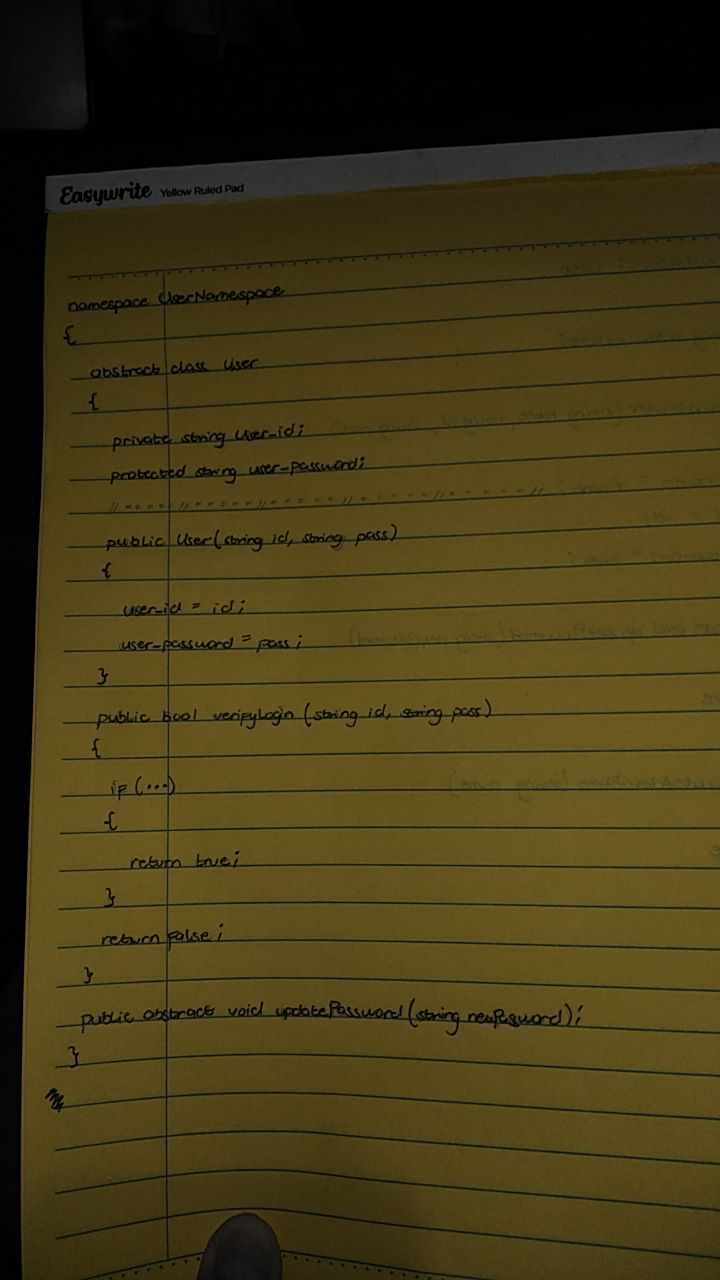 Easywrite Yellow Ruled Pad
namespace UserNamespace
{
abstract class User
{
private string user_id;
protected string user_password;
//-----//-----//-----//-----//-----//
public User(string id, string pass)
{
user_id = id;
user_password = pass;
}
public bool verifyLogin (string id, string pass)
{
if (...)
{
return true;
}
return false;
}
public abstract void updatePassword(string newPassword);
}